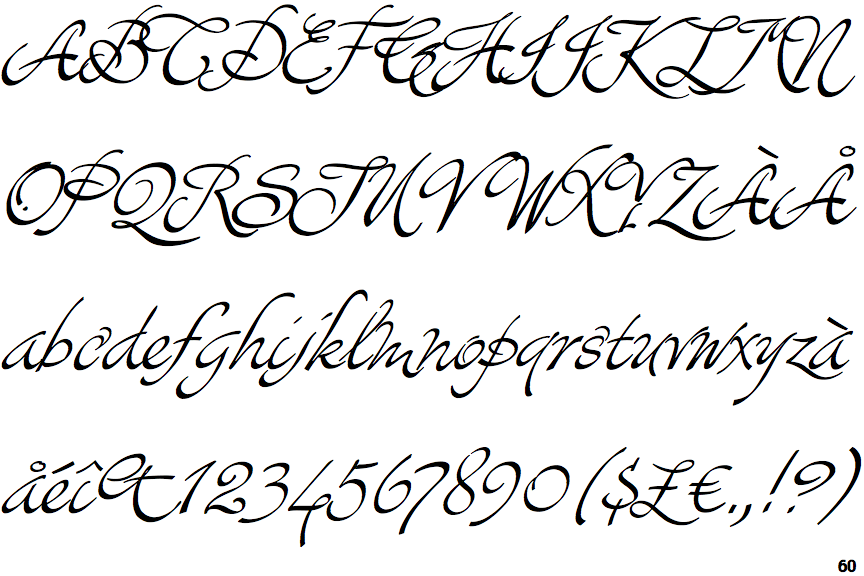 ABCDEFGHIJKLMN
OPQRSTUVWXYZÀÅ
abcdefghijklmnopqrstuvwxyzà
åéî&1234567890($£€.,!?)
60